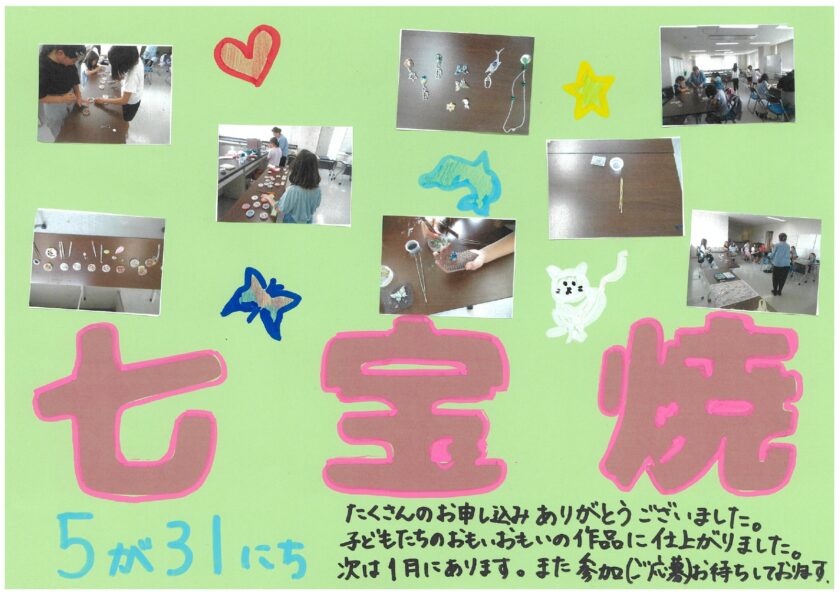 七宝焼
5が31にち
たくさんのお申し込みありがとうございました。
子どもたちのおもいおもいの作品に仕上がりました。
次は1月にあります。また参加(ご応募)お待ちしております。